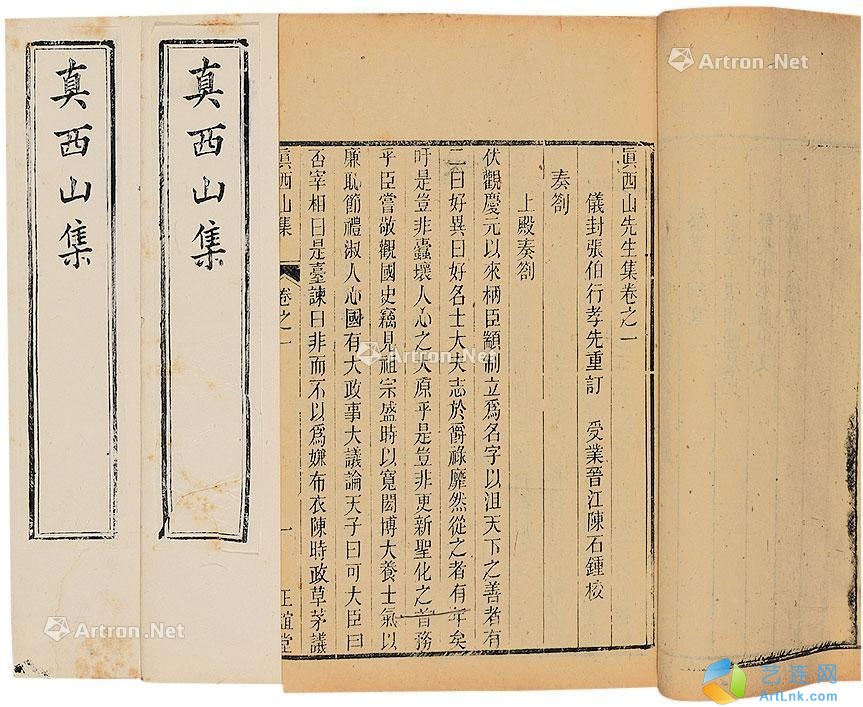 真西山集
真西山集
眞西山先生集卷之一
儀封張伯行孝先重訂 受業晉江陳石鍾校
奏劄
上殿奏劄
伏觀慶元以來柄臣顓制立爲名字以沮天下之善者有
二曰好異曰好名士大夫志於爵祿靡然從之者有年矣
吁是豈非蠹壞人心之大原乎是豈非更新聖化之首務
乎臣嘗敬觀國史竊見祖宗盛時以寬閎博大養士氣以
廉恥節禮淑人心國有大政事大議論天子曰可大臣曰
否宰相曰是臺諫曰非而不以爲嫌布衣陳時政草茅議
眞西山集 卷之一 一 正誼堂
Artron.Net
Artron.Net
Artron.Net
Artron.Net
Artron.Net
艺连网
ArtLnk.Com